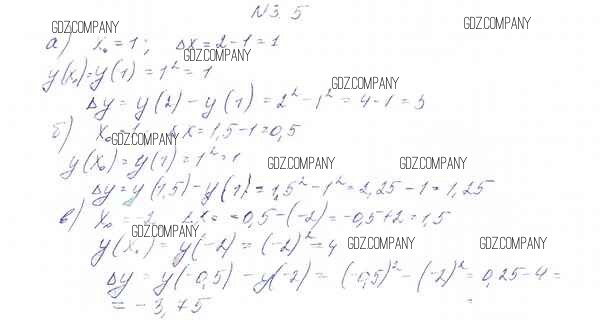 N 3.5
GDZ.COMPANY
GDZ.COMPANY
а) x₀ = 1; Δx = 2 - 1 = 1
GDZ.COMPANY
y(x₀) = y(1) = 1² = 1
GDZ.COMPANY
Δy = y(2) - y(1) = 2² - 1² = 4 - 1 = 3
б) x₀ = 1 Δx = 1,5 - 1 = 0,5
GDZ.COMPANY
y(x₀) = y(1) = 1² = 1
GDZ.COMPANY
GDZ.COMPANY
Δy = y(1,5) - y(1) = 1,5² - 1² = 2,25 - 1 = 1,25
в) x₀ = -2, Δx = -0,5 - (-2) = -0,5 + 2 = 1,5
GDZ.COMPANY
y(x₀) = y(-2) = (-2)² = 4
GDZ.COMPANY
GDZ.COMPANY
Δy = y(-0,5) - y(-2) = (-0,5)² - (-2)² = 0,25 - 4 =
= -3,75